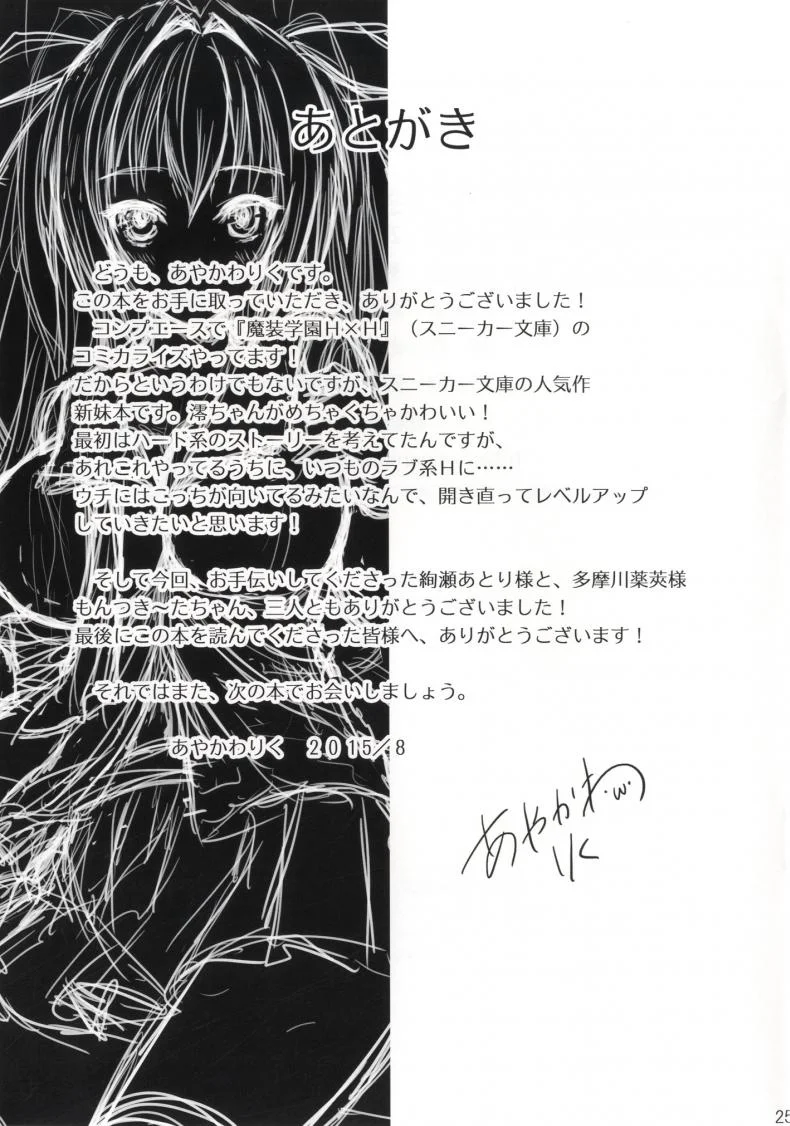 あとがき
どうも、あやかわりくです。
この本をお手に取っていただき、ありがとうございました！
コンプエースで『魔装学園Ｈ×Ｈ』（スニーカー文庫）の
コミカライズやってます！
だからというわけでもないですが、スニーカー文庫の人気作
新妹本です。澪ちゃんがめちゃくちゃかわいい！
最初はハード系のストーリーを考えてたんですが、
あれこれやってるうちに、いつものラブ系Ｈに……
ウチにはこっちが向いてるみたいなんで、開き直ってレベルアップ
していきたいと思います！
そして今回、お手伝いしてくださった絢瀬あとり様と、多摩川薬莢様
もんつき～たちゃん、三人ともありがとうございました！
最後にこの本を読んでくださった皆様へ、ありがとうございます！
それではまた、次の本でお会いしましょう。
あやかわりく　２０１５／８
あやかわ
りく
25